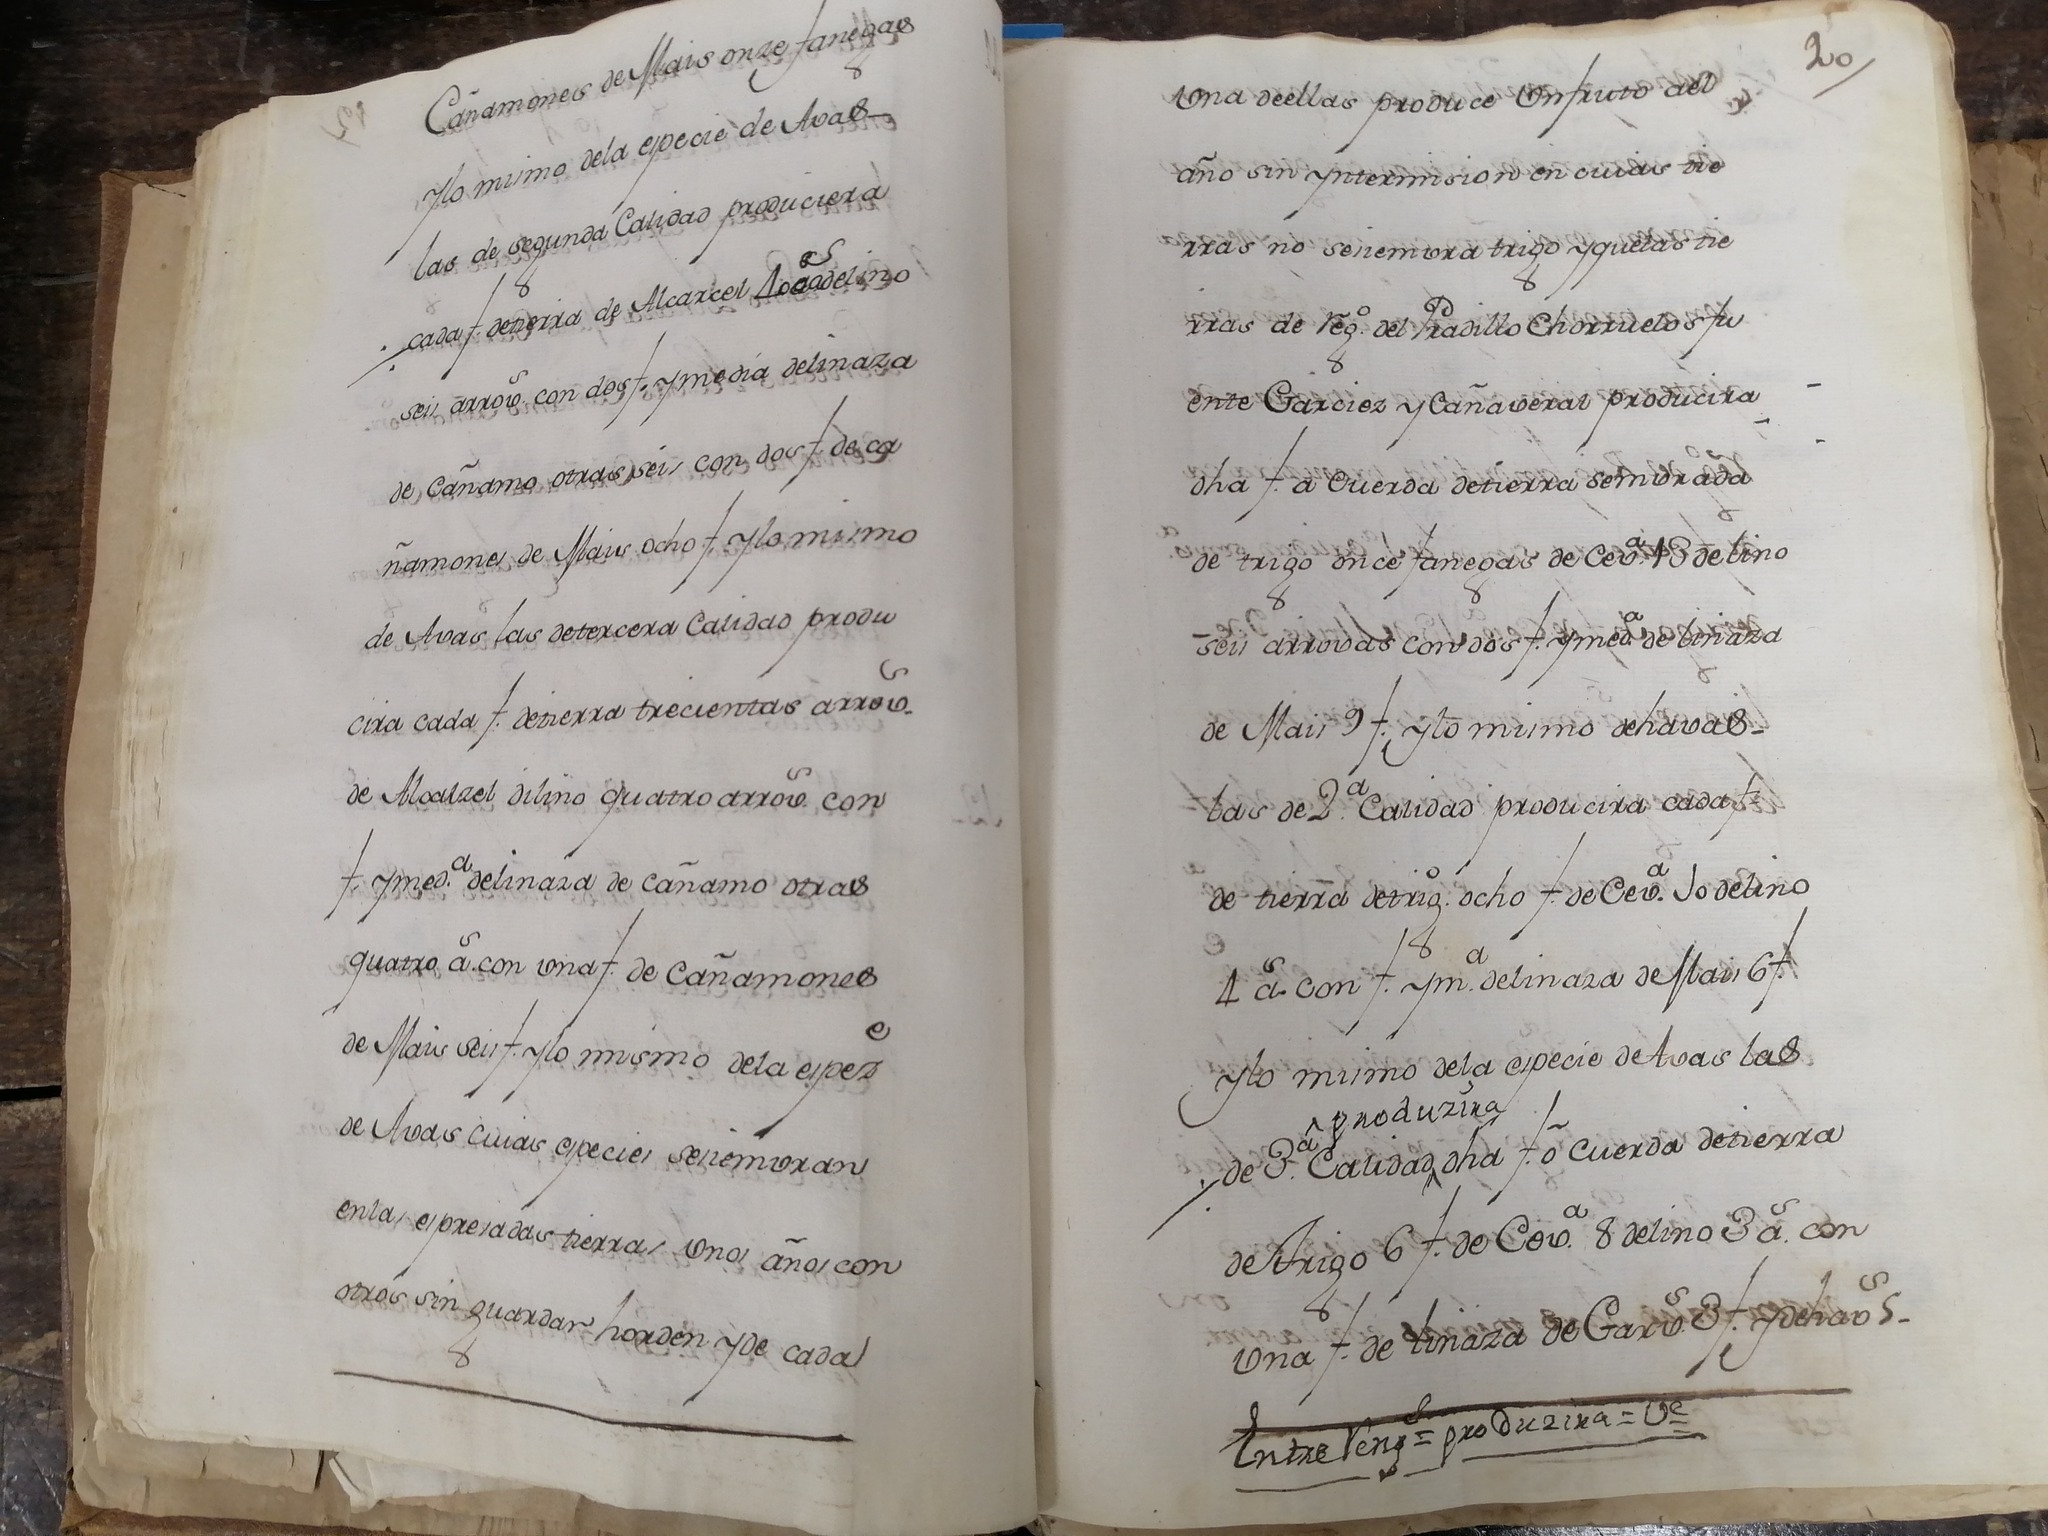 Cañamones de Mais onze fanegas
ylo mismo dela especie de Avas
las de segunda Calidad produciera
cada f. detierra de Alcarcel 400 as delino
seis arrovs. con dos f. ymedia delinaza
de cañamo otras seis con dos f. de ca
ñamones de Mais ocho f. ylo mismo
de Avas las detercera Calidad produ
cira cada f. detierra trecientas arrovs.
de Alcalzel dilino quatro arrovs. con
f. ymeda. delinaza de cañamo otras
quatro as. con vna f. de Cañamones
de Mais seis f. ylo mismo dela espeze
de Avas cuias especies sesiemvran
enlas espresadas tierras vnos años con
otros sin guardar horden yde cada
20
vna deellas produce vnfruto al
año sin yntermision en cuias tie
rras no sesiemvra trigo yquelas tie
rras de Rego. del Pradillo Chorruelos fu
ente Garciez y Cañaveral producira
dha f. a Cuerda detierra semvrada
de trigo once fanegas de Ceva. 13 de lino
seis arrovas con dos f. ymeda. de linaza
de Mais 9 f. ylo mismo dehavas
las de 2a. Calidad producira cada f.
de tierra detrigo. ocho f. de Ceva. 10 delino
4 as. con f. yma. delinaza de Mais 6 f.
ylo mismo dela especie de Avas las
produzira
de 3a. Calidad dha f. o cuerda detierra
de trigo 6 f. de Ceva. 8 delino 3 as. con
vna f. de linaza de Garvs. 3 f. ydehavs 5
Entre Reng = produzira = Ve